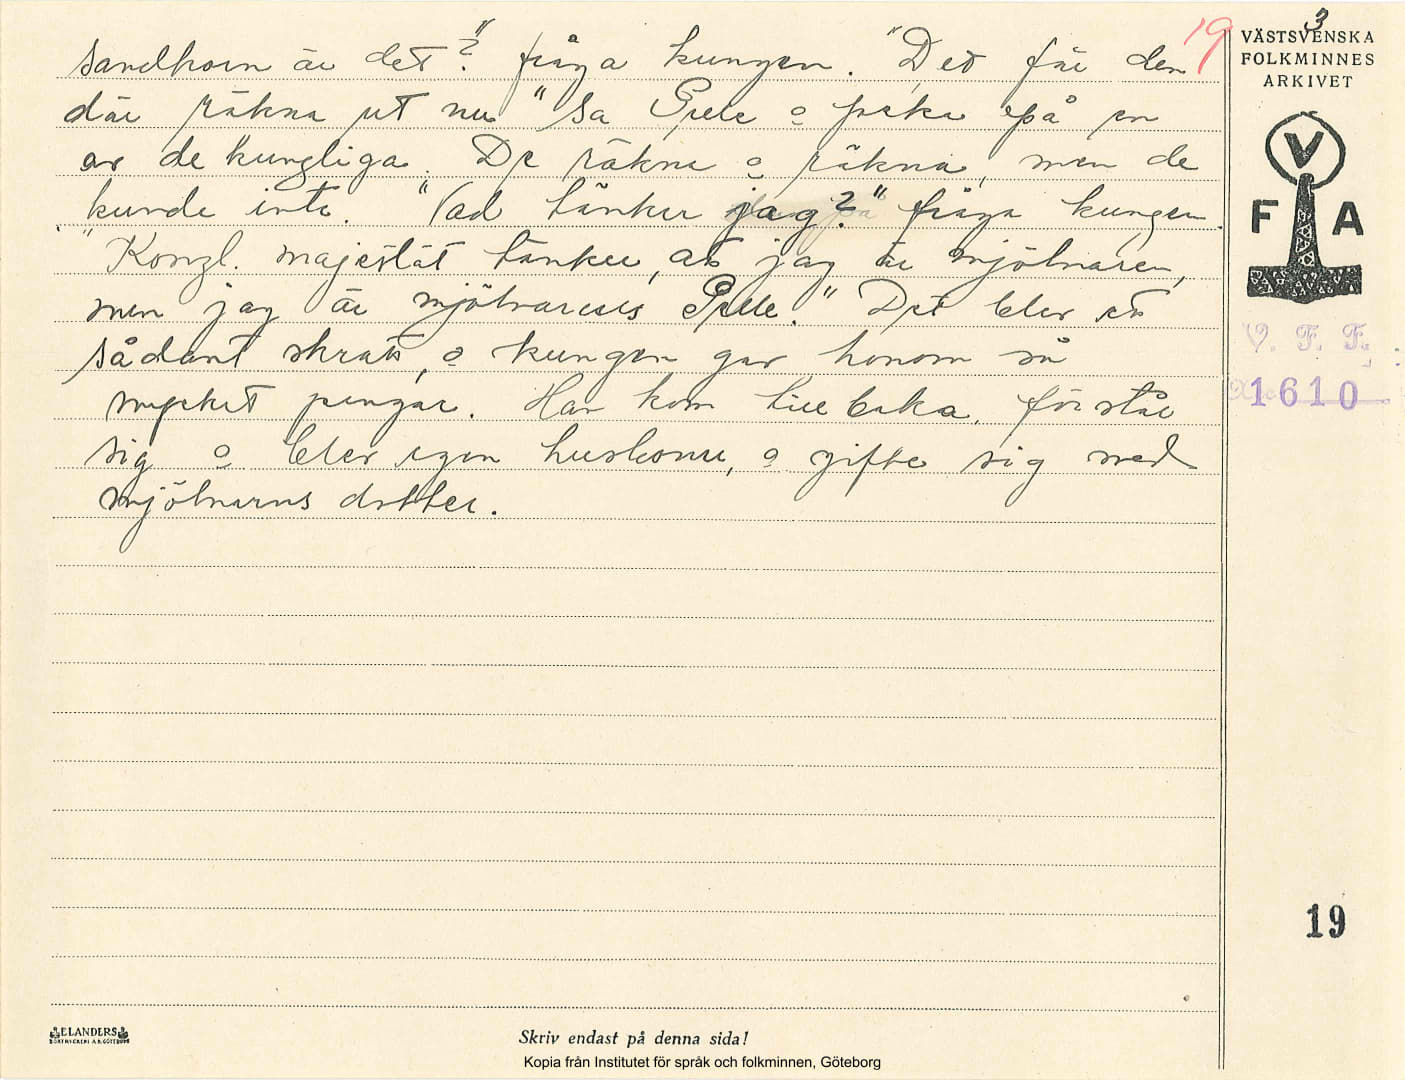 3
19
VÄSTSVENSKA
FOLKMINNES
ARKIVET
sandkorn är det?" fråga kungen. "Det får den
där räkna ut nu" sa Pelle o peka på en
av de kungliga. De räkna o räkna, men de
kunde inte. "Vad tänker jag?" fråga kungen.
"Kongl. majestät tänker, att jag är mjölnaren,
men jag är mjölnarens Pelle." Det blev ett
sådant skratt, o kungen gav honom så
mycket pengar. Han kom tillbaka, förstår
sig o blev egen huskarl, o gifte sig med
mjölnarns dotter.
V
F A
V. F. F.
1610
19
ELANDERS
BOKTRYCKERI A.B. GÖTEBORG
Skriv endast på denna sida!
Kopia från Institutet för språk och folkminnen, Göteborg